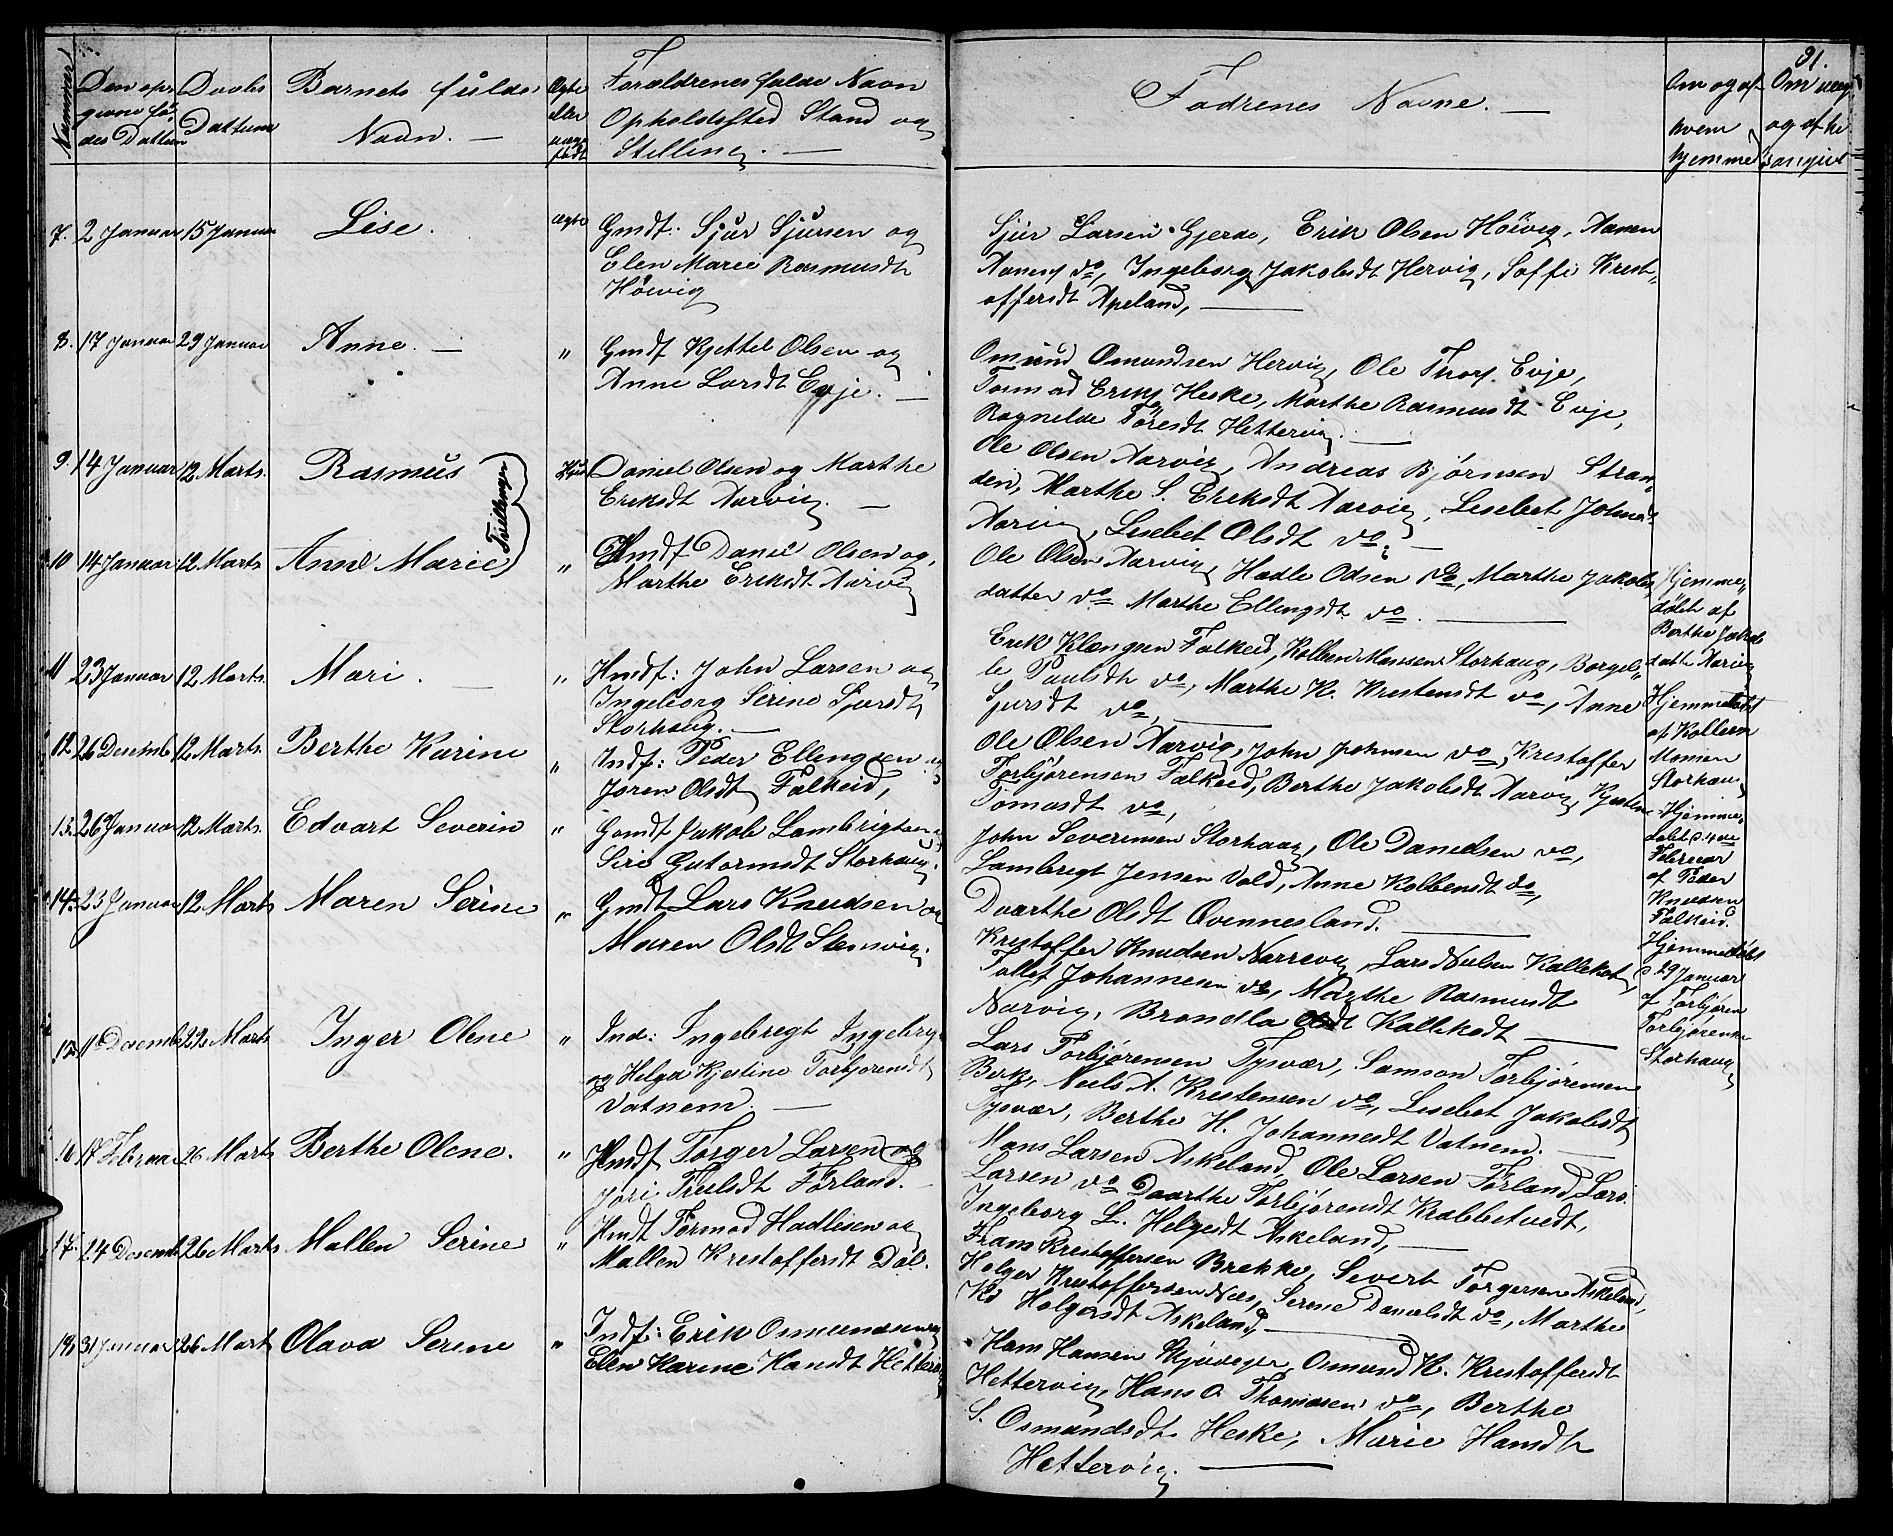 31.
Nummer
Den op-
givne Fø-
des Dattum
Daabs
Dattum
Barnets fulde
Navn. —
Ægte
eller
uægte
født
Forældrenes fulde Navn
Opholdssted Stand og
Stilling. —
Fadrenes Navne. —
Om og af
hvem
hjemme
Om
og af
7. 2 Januar 15 Januar Lise. ægte
Gmdf. Sjur Sjursen og
Elen Marie Rasmusdt
Höivig
Sjur Larsen Gjerde, Erik Olsen Höivig, Aanen
Aanens do, Ingeborg Jakobsdt Hervig, Soffi Krest-
offersdt Apeland, —
8. 17 Januar 29 Januar Anne. — "
Gmdf Kjettel Olsen og
Anne Larsdt Evje. —
Omund Omundsen Hervig, Ole Thors. Evje,
Tormod Eriks Heske, Marthe Rasmusdt Evje,
Ragnelde Toresdt Hettervig. —
9. 14 Januar 12 Marts. Rasmus
Daniel Olsen og Marthe
Eriksdt Aarvig. —
Ole Olsen Aarvig, Andreas Bjørnsen Stran-
den, Marthe S. Eriksdt Aarvig, Lisebet Johnsdt
Aarvig, Lisebet Olsdt do. —
Tvillinger
10 14 Januar 12 Marts. Anne Marie "
Hmdf Daniel Olsen og
Marthe Eriksdt Aarvig
Ole Olsen Aarvig, Hadle Odsen do, Marthe Jakobs
datter do Marthe Ellingsdt do. —
Hjemme-
døbt af
Berthe Jakobs
datt Aarvig
11 23 Januar 12 Marts. Mari. — "
Hmdf: John Larsen og
Ingeborg Serine Sjursdt
Storhaug. —
Erik Klængsen Falkeid, Kolben Monsen Storhaug, Borgel-
le Paulsdt do, Marthe K. Krestensdt do, Anne
Sjursdt do, —
Hjemmedøbt
af Kolleen
Monsen
Storhaug
12. 26 Desemb. 12 Marts. Berthe Karine "
Indf: Peder Ellingsen og
Joren Olsdt Falkeid,
Ole Olsen Aarvig, John Johnsen do, Krestoffer
Torbjörensen Falkeid, Berthe Jakobsdt Aarvig, Kjestine
Tomasdt do,
13. 26 Januar 12 Marts. Edvart Severin "
Gmdf Jakob Lambrigtsen
Siri Gutormsdt Storhaug.
John Severinsen Storhaug, Ole Danielsen do,
Lambregt Jensen Vold, Anne Kolbensdt do,
Dvarthe Olsdt Qvennesland. —
Hjemme-
døbt d.
Februar
af Peder
Knudsen
Falkeid.
14. 23 Januar 12 Marts Maren Serine "
Gmdf Lars Knudsen og
Maren Olsdt Stensvig.
Krestoffer Knudsen Narrevig, Lars Nilsen Kallekot,
Tollef Johannesen do, Marthe Rasmusdt
Narvig, Brondla Olsdt Kallekodt —
Hjemmedøbt
d 29 Januar
af Torbjøren
Torbjørense
Storhaug
15. 11 Decemb 22 Marts Inger Olene "
Ind: Ingebregt Ingebrigt
og Helga Kjestine Torbjorensdt
Vatnem. —
Lars Torbjörensen Tysvær, Samson Torbjörensen
Berk, Neels A. Krestensen do, Lisebet Jakobsdt
Tysvær, Berthe H. Johannesdt Vatnem. —
16 17 Februar 26 Marts Berthe Olene. "
Hmdf Torger Larsen og
Jori Trulsdt Førland. —
Mons Larsen Askeland, Ole Larsen Førland, Lars
Larsen do Daarthe Torbjörensdt Krabbetvedt,
Ingeborg L. Helgesdt Askeland, —
17. 24 Desemb 26 Marts Mallen Serine "
Hmdf Tormod Hadlesen og
Mallen Krestoffersdt Dal.
Frans Krestoffersen Brekke, Severt Torgersen Askeland,
Holger Krestoffersen Næs, Serene Danielsdt do, Marthe
Kd Holgersdt Askeland, —
18. 31 Januar 26 Mart Olava Serene "
Indf: Erik Osmundsen og
Elen Karine Hansdt Hettervig
Hans Hansen Skjoveger, Osmund H. Krestoffersdt
Hettervig, Hans O Thomasen do, Berthe
S. Osmundsdt Heske, Marie Hansdt
Hettervig. —